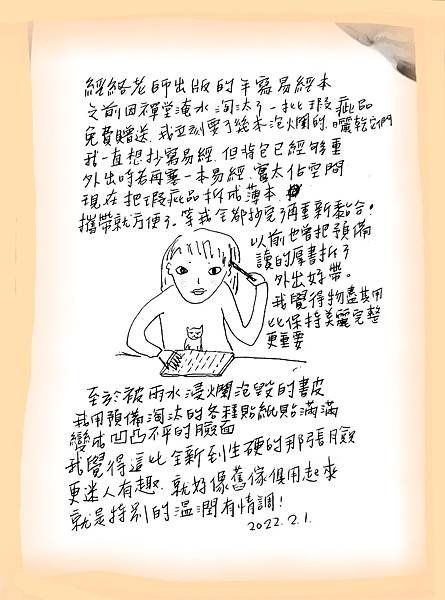 經絡老師出版的手寫易經本
之前因禪堂淹水淘汰了一批瑕疵品
免費贈送.我立刻要了幾本泡爛的.曬乾它們
我一直想抄寫易經.但背包已經夠重
外出時若再塞一本易經.實太佔空間
現在把瑕疵品拆成薄本.
攜帶就方便了.等我全部抄完了再重新黏合。
以前也曾把預備
讀的厚書拆了
外出好帶。
我覺得物盡其用
比保持美麗完整
更重要
至於被雨水浸爛泡毀的書皮
我用預備淘汰的各種貼紙貼滿滿
變成凹凸不平的臉面
我覺得這比全新到生硬的那張臉
更迷人有趣.就好像舊傢俱用起來
就是特別的溫潤有情調!
2022.2.1.